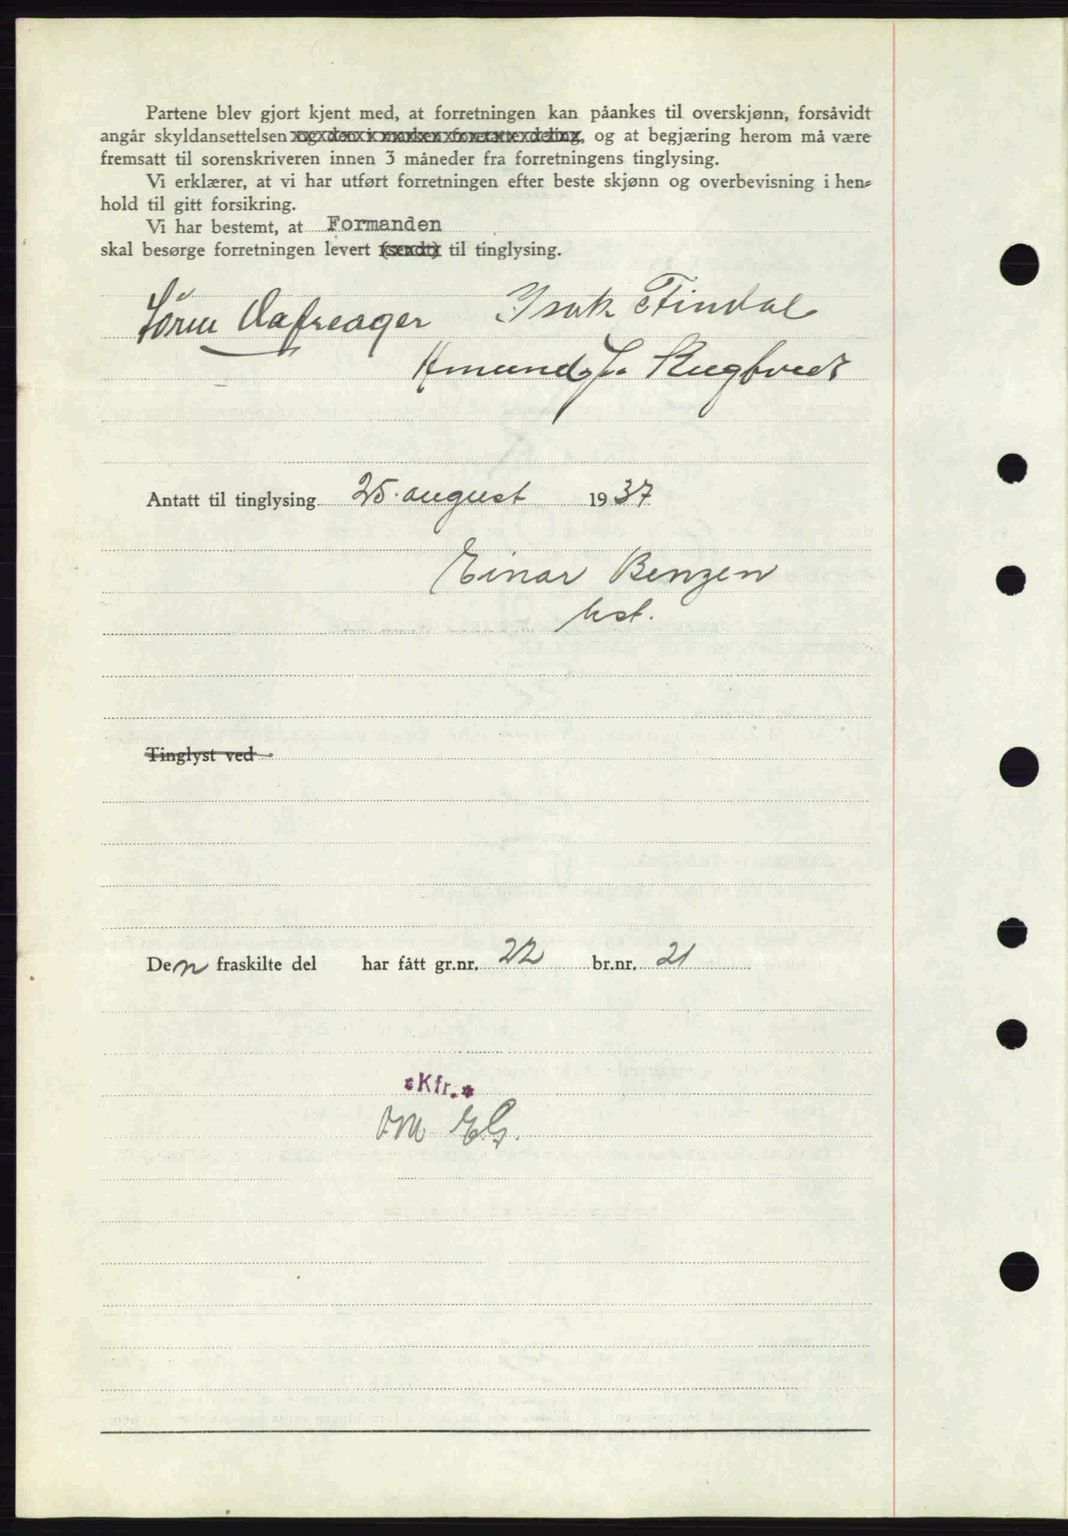 Partene blev gjort kjent med, at forretningen kan påankes til overskjønn, forsåvidt
angår skyldansettelsen og den i marken foretatte deling, og at begjæring herom må være
fremsatt til sorenskriveren innen 3 måneder fra forretningens tinglysing.
Vi erklærer, at vi har utført forretningen efter beste skjønn og overbevisning i hen-
hold til gitt forsikring.
Vi har bestemt, at Formanden
skal besørge forretningen levert (sendt) til tinglysing.
Isak Findal
Antatt til tinglysing 25. august 1937
Einar Benzen
kst.
Tinglyst ved
Den fraskilte del har fått gr.nr. 22 br.nr. 21
*Kfr.*
EG.